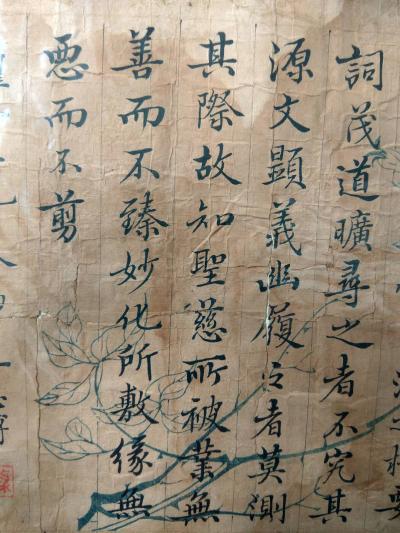 之機要
詞茂道曠尋之者不究其
源文顯義幽履之者莫測
其際故知聖慈所被業無
善而不臻妙化所敷緣無
惡而不剪